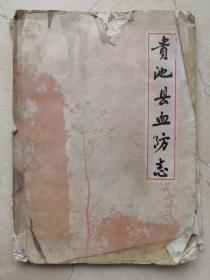 貴池县血防志